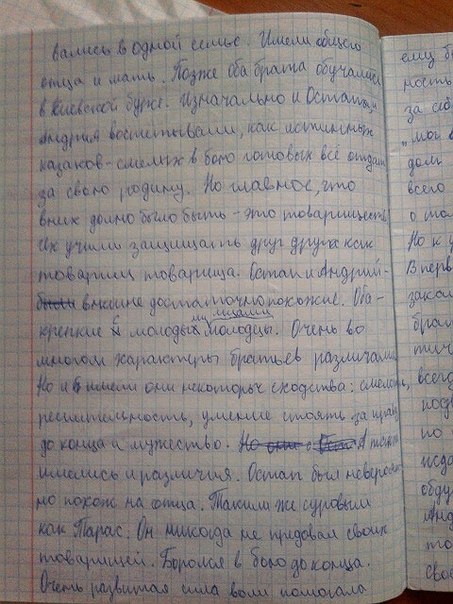 вались в одной семье. Имели общего
отца и мать. Позже оба брата обучались
в Киевской бурсе. Изначально и Остапа и
Андрия воспитывали, как истинных
казаков - смелых в бою готовых всё отдать
за свою родину. Но главное, что
в них должно было быть - это товарищество
Их учили защищать друг друга как
товарищ товарища. Остап и Андрий -
внешне достаточно похожие. Оба -
крепкие с молодыми лицами молодцы. Очень во
многом характеры братьев различались
Но и имели они некоторые сходства: смелость,
решительность, умение стоять за правду
до конца и мужество. А также
имелись и различия. Остап был невероят
но похож на отца. Таким же суровым
как Тарас. Он никогда не предавал своих
товарищей. Боролся в бою до конца.
Очень развитая сила воли помогала
ему
ность
за
"мог
долг
всего
о
Но к
В перв
зако
брат
тич
всегд
по
обду
Анд
то
свое